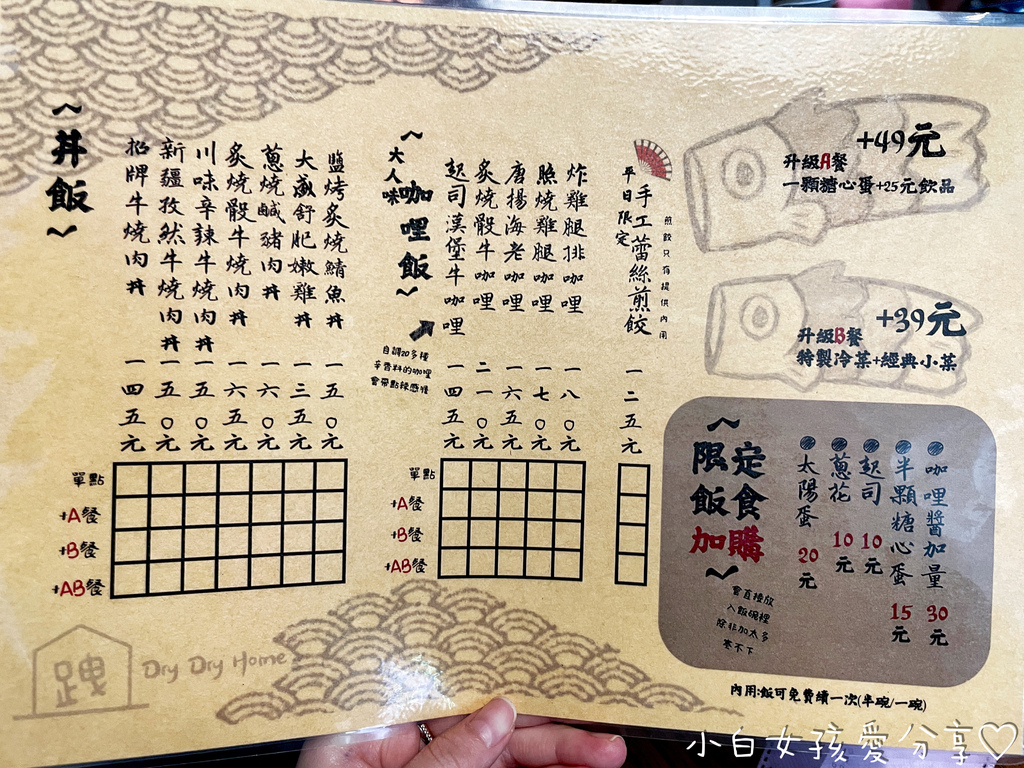 ︿丼飯﹀
招牌牛燒肉丼 一四五元
新疆孜然牛燒肉丼 一五〇元
川味辛辣牛燒肉丼 一五〇元
炙燒骰牛燒肉丼 一六五元
蔥燒鹹豬肉丼 一六〇元
大滿舒肥嫩雞丼 一三五元
鹽烤炙燒鯖魚丼 一五〇元
單點
+A餐
+B餐
+AB餐
︿大人味咖哩飯﹀
自調20多種
辛香料的咖哩
會帶點辣感唷
起司漢堡牛咖哩 一四五元
炙燒骰牛咖哩 二一〇元
唐揚海老咖哩 一六五元
照燒雞腿咖哩 一七〇元
炸雞腿排咖哩 一八〇元
單點
+A餐
+B餐
+AB餐
平日限定
手工蕾絲煎餃 一二五元
煎餃只有提供內用
+49元
升級A餐
一顆糖心蛋+25元飲品
+39元
升級B餐
特製冷菜+經典小菜
︿限定飯食加購﹀
會直接放
入飯碗裡
除非加太多
塞不下
太陽蛋 20元
蔥花 10元
起司 10元
半顆糖心蛋 15元
咖哩醬加量 30元
內用:飯可免費續一次(半碗/一碗)
跩
Dry Dry Home
小白女孩愛分享♡